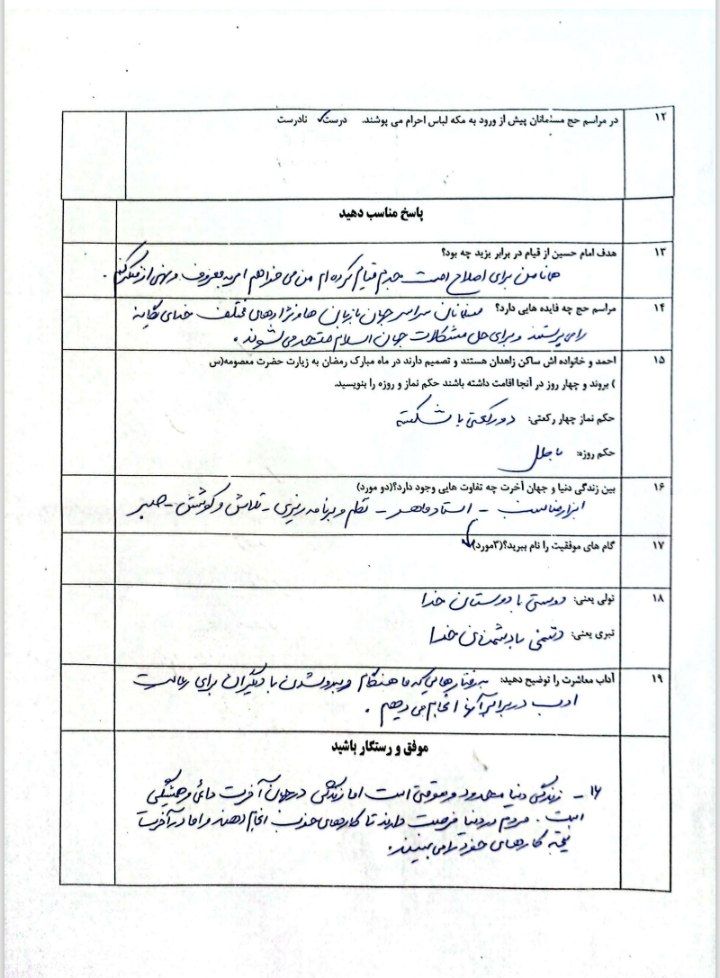 ۱۲ در مراسم حج مسلمانان پیش از ورود به مکه لباس احرام می پوشند. درست✓ نادرست
پاسخ مناسب دهید
۱۳ هدف امام حسین از قیام در برابر یزید چه بود؟
همانا من برای اصلاح امت جدم قیام کرده ام من می خواهم امر به معروف و نهی از منکر کنم.
۱۴ مراسم حج چه فایده هایی دارد؟ مسلمانان سراسر جهان با زبان ها و نژادهای مختلف خدای یگانه
را می پرستند و برای حل مشکلات جهان اسلام متحد می شوند.
۱۵ احمد و خانواده اش ساکن زاهدان هستند و تصمیم دارند در ماه مبارک رمضان به زیارت حضرت معصومه(س
) بروند و چهار روز در آنجا اقامت داشته باشند حکم نماز و روزه را بنویسید.
حکم نماز چهار رکعتی: دو رکعتی یا شکسته
حکم روزه: باطل
۱۶ بین زندگی دنیا و جهان آخرت چه تفاوت هایی وجود دارد؟(دو مورد)
ابزار مناسب - استاد ماهر - نظم و برنامه ریزی - تلاش و کوشش - صبر
۱۷ گام های موفقیت را نام ببرید؟(۳مورد)
۱۸ تولی یعنی: دوستی با دوستان خدا
تبری یعنی: دشمنی با دشمنان خدا
۱۹ آداب معاشرت را توضیح دهید: به رفتارهایی که ما هنگام روبرو شدن با دیگران برای رعایت
ادب در برابر آنها انجام می دهیم.
موفق و رستگار باشید
۱۶ - زندگی دنیا محدود و موقتی است اما زندگی در جهان آخرت دائمی و همیشگی
است. مردم در دنیا فرصت دارند تا کارهای خوب انجام دهند و اما در آخرت
نتیجه کارهای خود را می بینند.